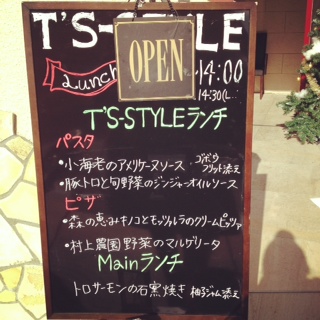 T'S-STYLE
Lunch
OPEN
14:00
14:30(L
T'S-STYLEランチ
パスタ
・小海老のアメリケーヌソース ゴボウフリット添え
・豚トロと旬野菜のジンジャーオイルソース
ピザ
・森の恵みキノコとモッツァレラのクリームピッツァ
・村上農園野菜のマルゲリータ
Mainランチ
トロサーモンの石窯焼き 柚子ジャム添え